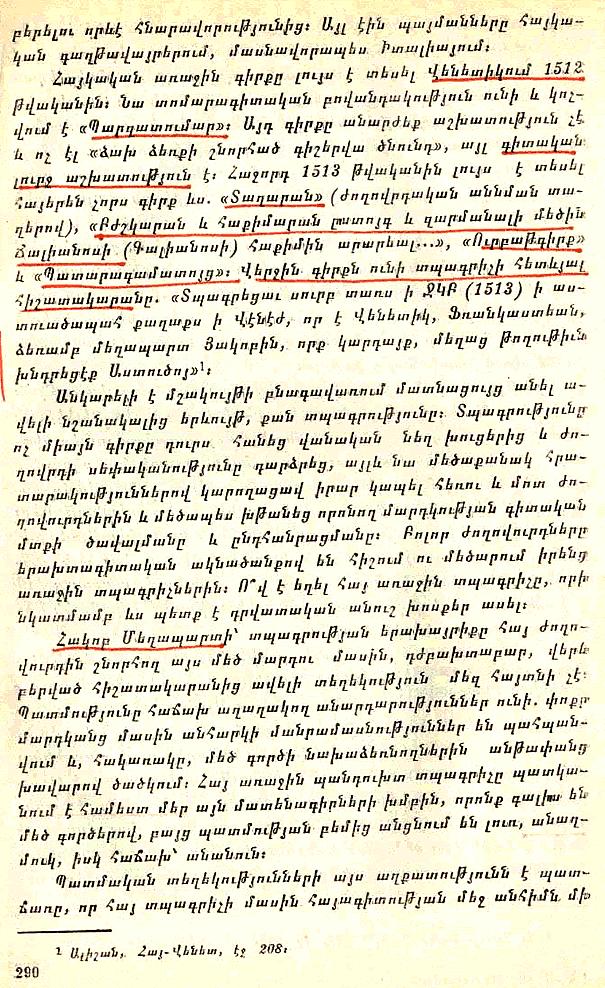 բերելու որևէ հնարավորությունից։ Այլ էին պայմանները հայկա-
կան գաղթավայրերում, մասնավորապես Իտալիայում։
Հայկական առաջին գիրքը լույս է տեսել Վենետիկում 1512
թվականին։ Նա տոմարագիտական բովանդակություն ունի և կոչ-
վում է «Պարզատումար»։ Այդ գիրքը անարժեք աշխատություն չէ
և ոչ էլ «ձախ ձեռքի շնորհած գիշերվա ծնունդ», այլ գիտական
լուրջ աշխատություն է։ Հաջորդ 1513 թվականին լույս է տեսել
հայերեն չորս գիրք ևս. «Տաղարան» (ժողովրդական աննման տա-
ղերով), «Բժշկարան և հաքիմարան ըստոյգ և զարմանալի մեծին
Ճալիանոսի (Գալիանոսի) հաքիմին արարեալ...», «Ուրբաթգիրք»
և «Պատարագամատոյց»։ Վերջին գիրքն ունի տպագրիչի հետևյալ
հիշատակարանը. «Տպագրեցաւ սուրբ տառս ի ՋԿԲ (1513) ի աս-
տուածապահ քաղաքս ի Վէնէժ, որ է Վենետիկ, Ֆռանկաստեան,
ձեռամբ մեղապարտ Յակոբին, որք կարդայք, մեղաց թողութիւն
խնդրեցէք Աստուծոյ»¹։
Անկարելի է մշակույթի բնագավառում մատնացույց անել ա-
վելի նշանակալից երևույթ, քան տպագրությունը։ Տպագրությունը
ոչ միայն գիրքը դուրս հանեց վանական նեղ խուցերից և ժո-
ղովրդի սեփականությունը դարձրեց, այլև նա մեծաքանակ հրա-
տարակություններով կարողացավ իրար կապել հեռու և մոտ ժո-
ղովուրդներին և մեծապես խթանեց որոնող մարդկության գիտական
մտքի ծավալմանը և ընդհանրացմանը։ Բոլոր ժողովուրդները
երախտագիտական ակնածանքով են հիշում ու մեծարում իրենց
առաջին տպագրիչներին։ Ո՞վ է եղել հայ առաջին տպագրիչը, որի
նկատմամբ ևս պետք է դրվատական անուշ խոսքեր ասել։
Հակոբ Մեղապարտի՝ տպագրության երախայրիքը հայ ժողո-
վուրդին շնորհող այս մեծ մարդու մասին, դժբախտաբար, վերև
բերված հիշատակարանից ավելի տեղեկություն մեզ հայտնի չէ։
Պատմությունը հաճախ աղաղակող անարդարություններ ունի. փոքր
մարդկանց մասին անհարկի մանրամասնություններ են պահպան-
վում և, հակառակը, մեծ գործի նախաձեռնողներին անթափանց
խավարով ծածկում։ Հայ առաջին պանդուխտ տպագրիչը պատկա-
նում է համեստ մեր այն մատենագիրների խմբին, որոնք գալիս են
մեծ գործերով, բայց պատմության բեմից անցնում են լուռ, անաղ-
մուկ, իսկ հաճախ՝ անանուն։
Պատմական տեղեկությունների այս աղքատությունն է պատ-
ճառը, որ հայ տպագրիչի մասին հայագիտության մեջ անհիմն մի
¹ Ալիշան, Հայ-Վենետ, էջ 208։
290